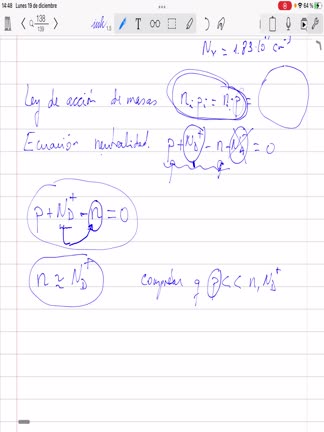 14:48 Lunes 19 de diciembre
64 %
138
139
Nv = 1.83·10¹⁹ cm⁻³
Ley de acción de masas nᵢ·pᵢ = n·p =
Ecuación neutralidad. p + N_D⁺ - n - N_A⁻ = 0
p + N_D⁺ - n = 0
n ≃ N_D⁺ comprobar q p << n, N_D⁺